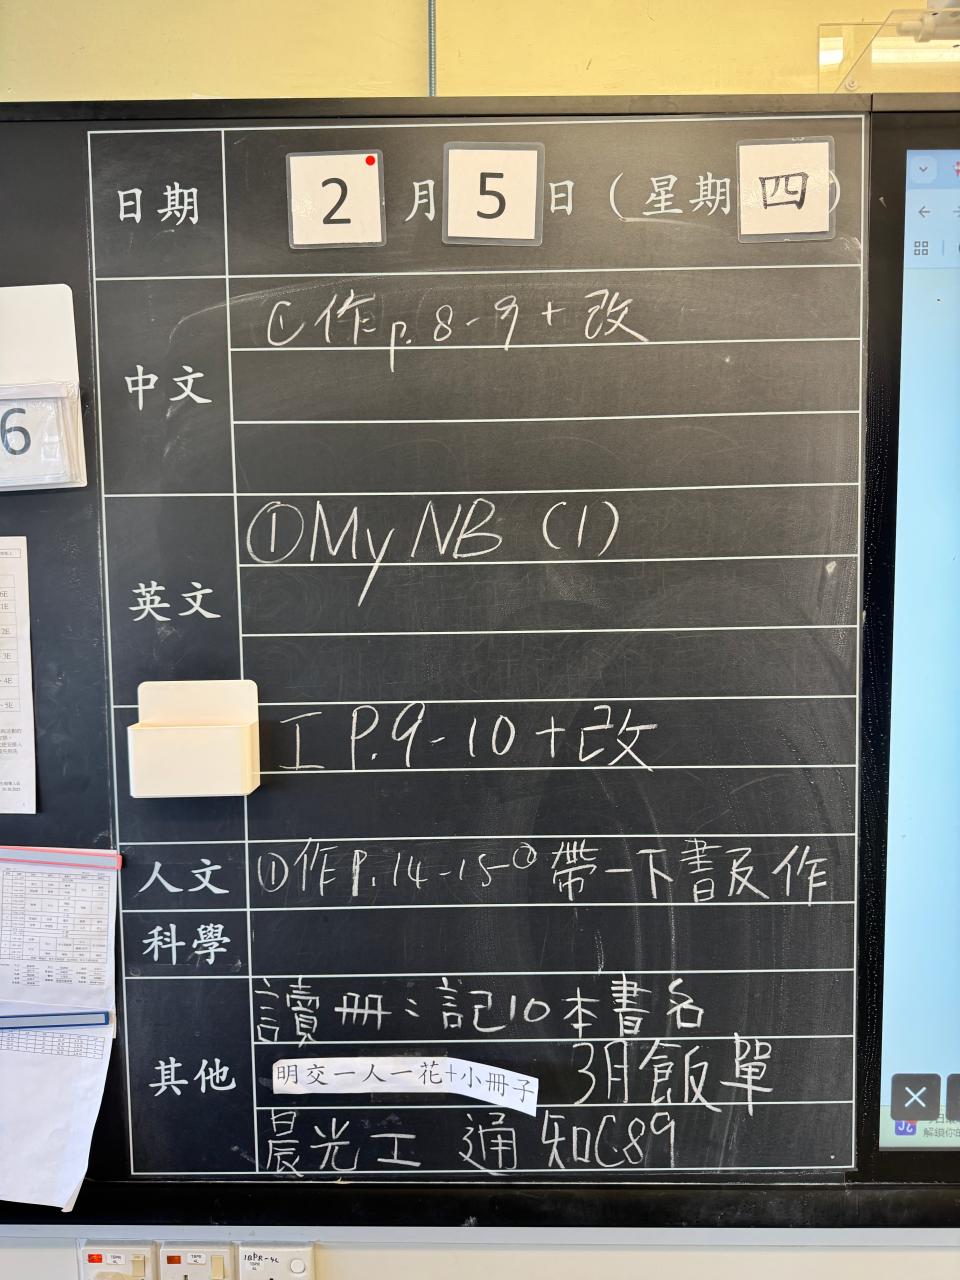 日期 2 月 5 日 (星期 四)
中文 ① 作 p. 8-9 + 改
英文 ① My NB (1)
工 P. 9-10 + 改
人文 ① 作 P. 14-15 ② 帶一下書及作
科學
其他 讀冊：記10本書名
明交一人一花+小冊子 3月飯單
晨光工 通知C89
6